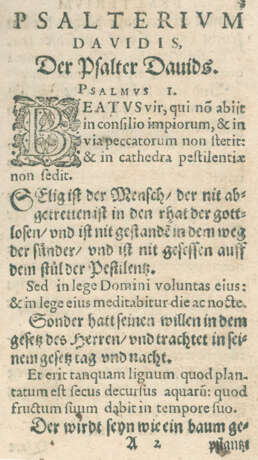 PSALTERIVM
DAVIDIS,
Der Psalter Dauids.
PSALMVS I.
BEATVS vir, qui nō abijt
in consilio impiorum, & in
via peccatorum non stetit:
& in cathedra pestilentiæ
non sedit.
SElig ist der Mensch/ der nit ab-
getretten ist in den rhat der gott-
losen/ vnd ist nit gestandē in dem weg
der sünder/ vnd ist nit gesessen auff
dem stůl der Pestilentz.
Sed in lege Domini voluntas eius:
& in lege eius meditabitur die ac nocte.
Sonder hatt seinen willen in dem
gesetz des Herren/ vnd trachtet in sei-
nem gesetz tag vnd nacht.
Et erit tanquam lignum quod plan-
tatum est secus decursus aquarū: quod
fructum suum dabit in tempore suo.
Der wirdt seyn wie ein baum ge-
A 2 pflantzt